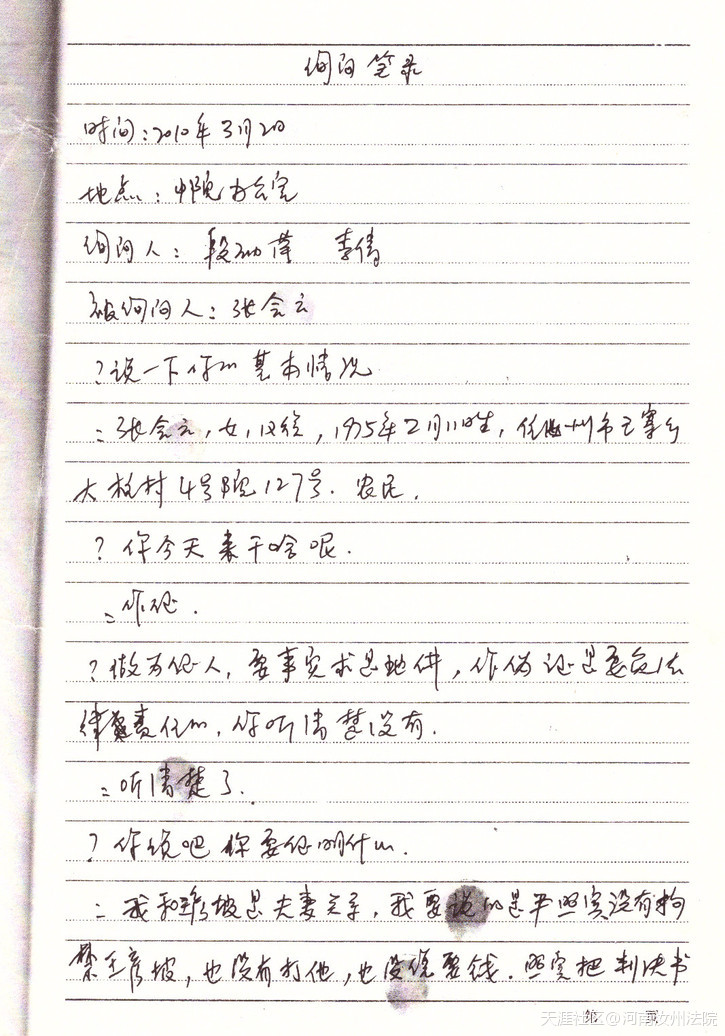 询问笔录
时间：2010年3月2日
地点：中院办公室
询问人：段 李倩
被询问人：张会云
？说一下你的基本情况
：张会云，女，汉族，1975年2月11日生，住汝州市王寨乡
大 村4号院127号．农民．
？你今天来干啥呢．
：作证．
？做为证人，要事实求是地讲，作伪证是要负法
律责任的，你听清楚没有．
：听清楚了．
？你说吧 你要证明什么．
：我和王彦坡是夫妻关系，我要说的是 照实没有拘
禁王彦坡，也没有打他，也没说要钱．照实把判决书
第 页
天涯社区@河南汝州法院